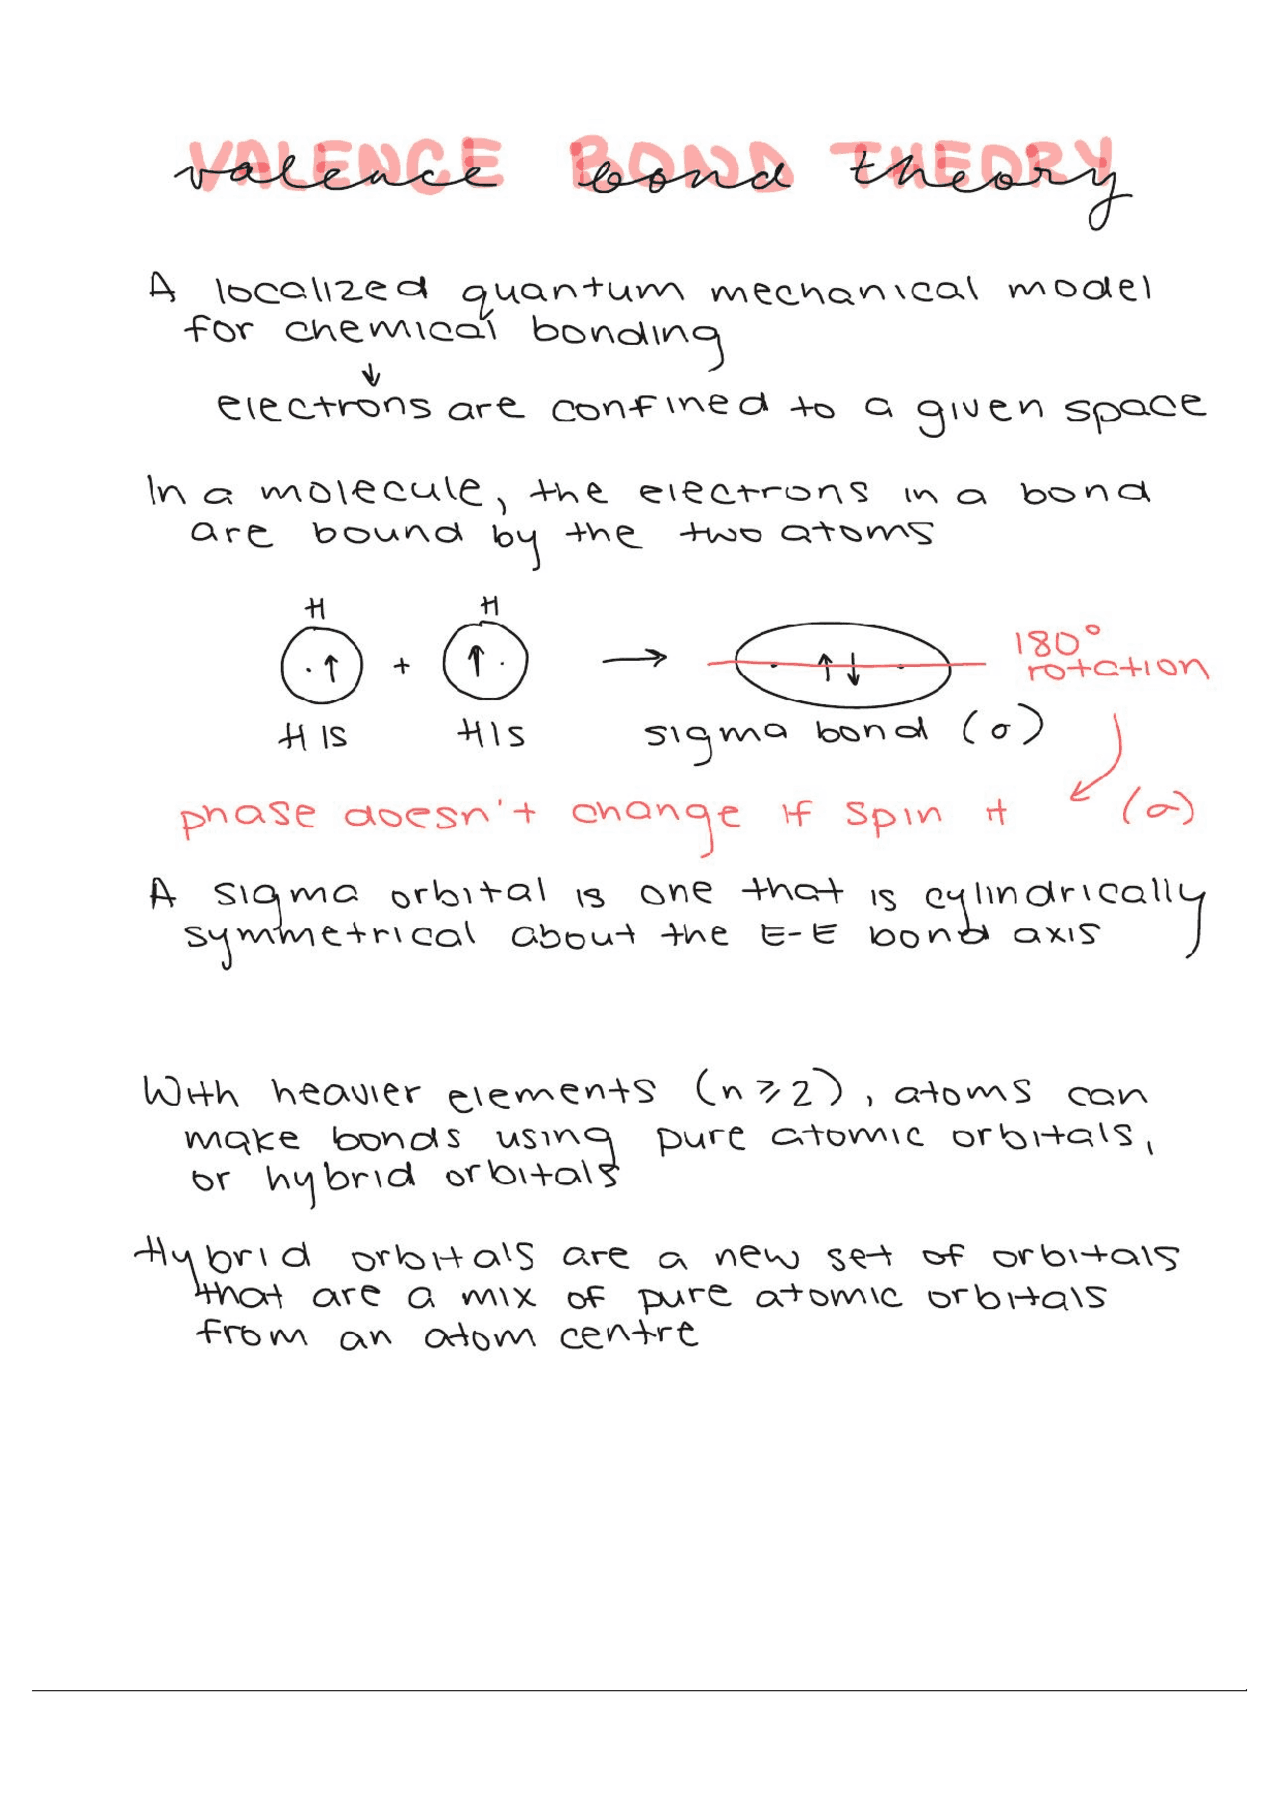 VALENCE BOND THEORY
valence bond theory
A localized quantum mechanical model
for chemical bonding
↓
electrons are confined to a given space
In a molecule, the electrons in a bond
are bound by the two atoms
H H
·↑ + ↑· → ↑↓ 180°
rotation
H 1s H 1s sigma bond (σ)
phase doesn't change if spin it (σ)
A sigma orbital is one that is cylindrically
symmetrical about the E-E bond axis
With heavier elements (n ≥ 2), atoms can
make bonds using pure atomic orbitals,
or hybrid orbitals
Hybrid orbitals are a new set of orbitals
that are a mix of pure atomic orbitals
from an atom centre